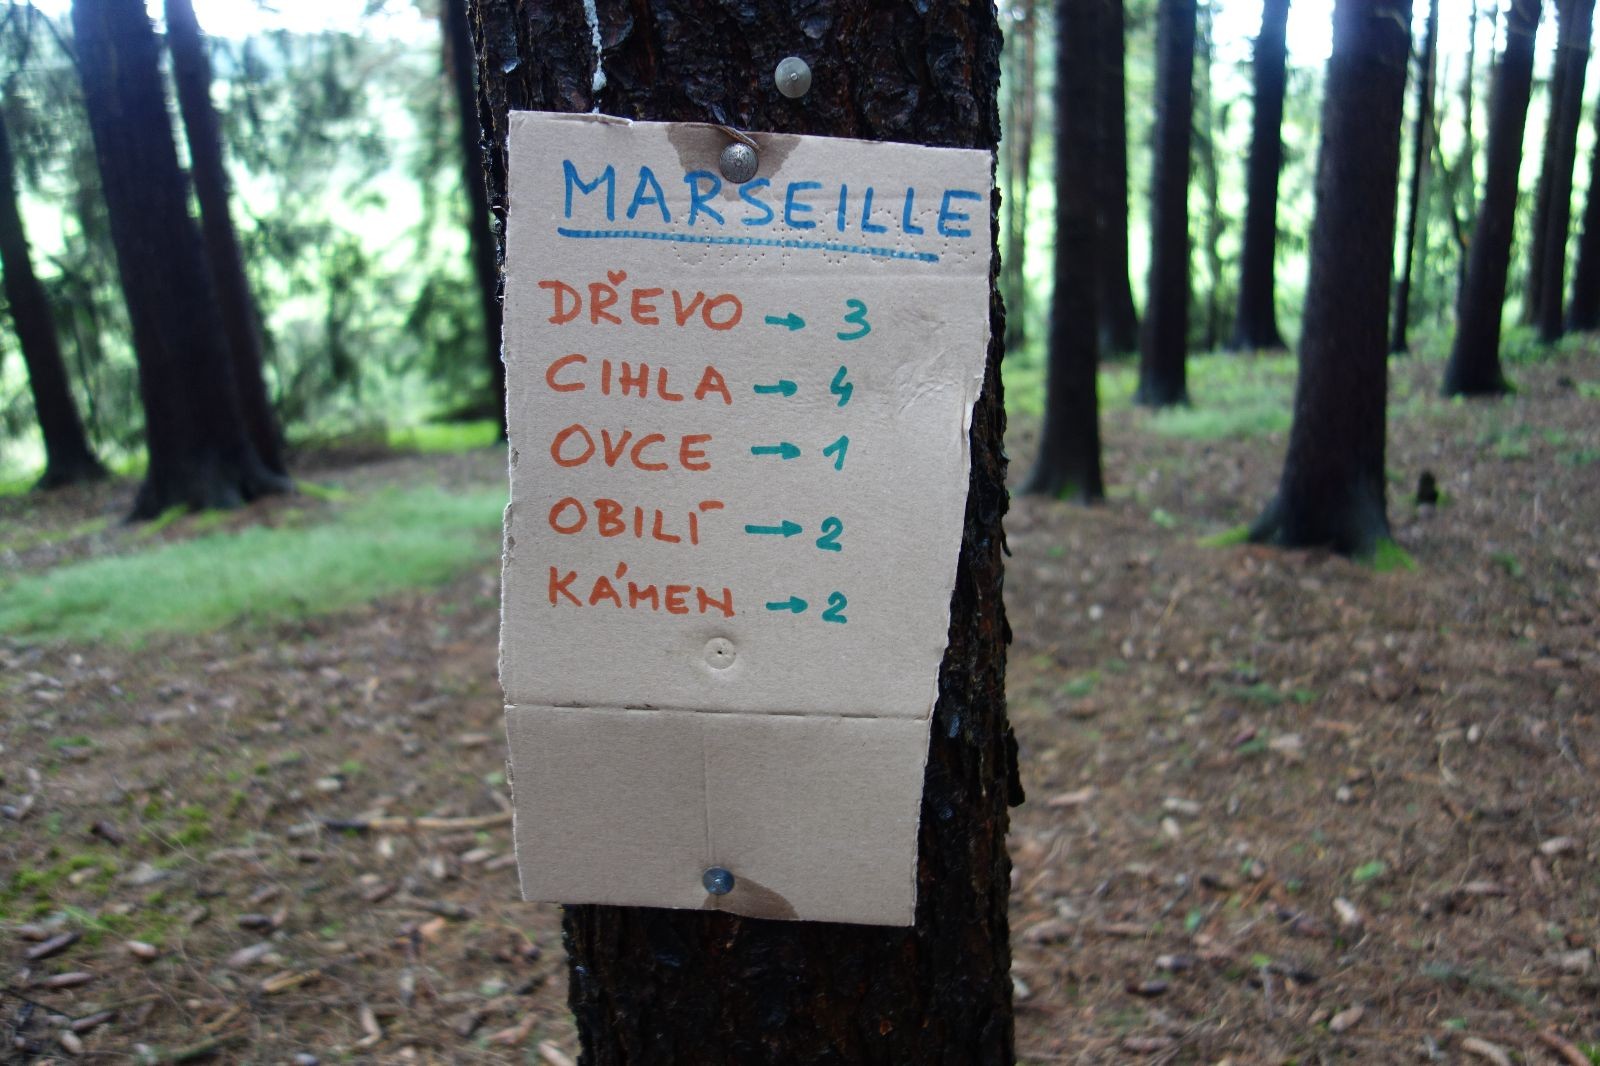 MARSEILLE
DŘEVO → 3
CIHLA → 4
OVCE → 1
OBILÍ → 2
KÁMEN → 2